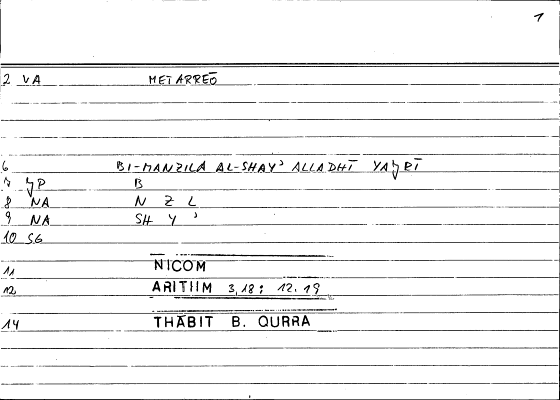 1
2 VA METARREŌ
6 BI-MANZILA AL-SHAYʾ ALLADHĪ YAJRĪ
7 JP B
8 NA N Z L
9 NA SH Y ʾ
10 SG
11 NICOM
12 ARITIIM 3,18; 12.19
14 THĀBIT B. QURRA